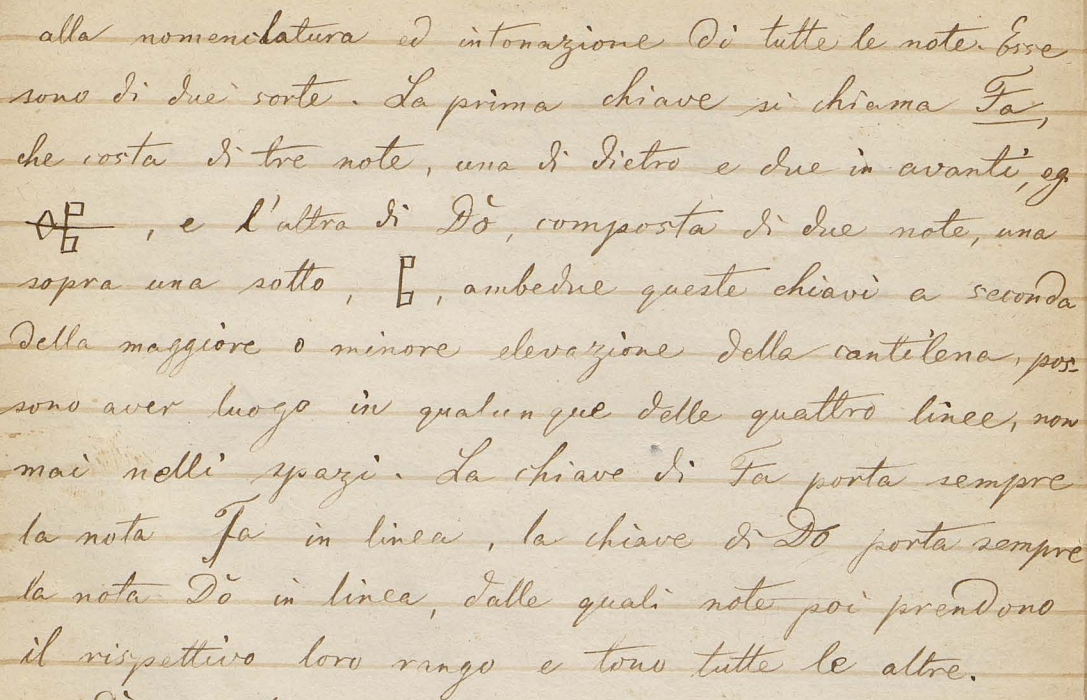 alla nomenclatura ed intonazione di tutte le note. Esse
sono di due sorte. La prima chiave si chiama Fa,
che costa di tre note, una di dietro e due in avanti, eg
, e l'altra di Dò, composta di due note, una
sopra una sotto, , ambedue queste chiavi a seconda
della maggiore o minore elevazione della cantilena, pos-
sono aver luogo in qualunque delle quattro linee, non
mai nelli spazi. La chiave di Fa porta sempre
la nota Fa in linea, la chiave di Do porta sempre
la nota Dò in linea, dalle quali note poi prendono
il rispettivo loro rango e tono tutte le altre.